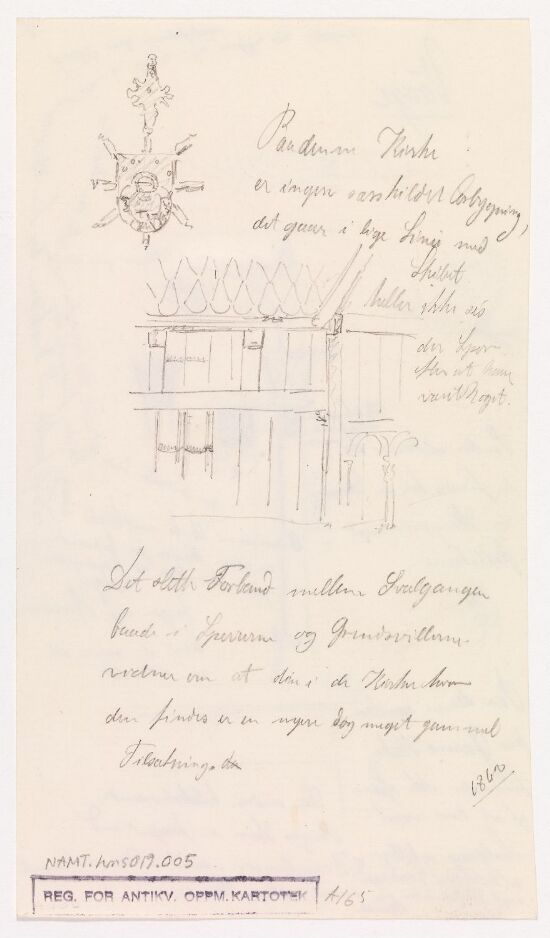 Kirke
er ingen særskildt Udbygning,
det gaar i lige Linie med
Skibet
heller ikke sés
der Spor
efter at have
værit Noget.
Det slette Forband mellem Svalgangen
baade i Sperrerne og Grundsvillerne
vidner om at den i de Kirker hvor
den findes er en nyere dog meget gammel
Tilsætning.
1862
NAMT.hns019.005
REG. FOR ANTIKV. OPPM. KARTOTEK A165